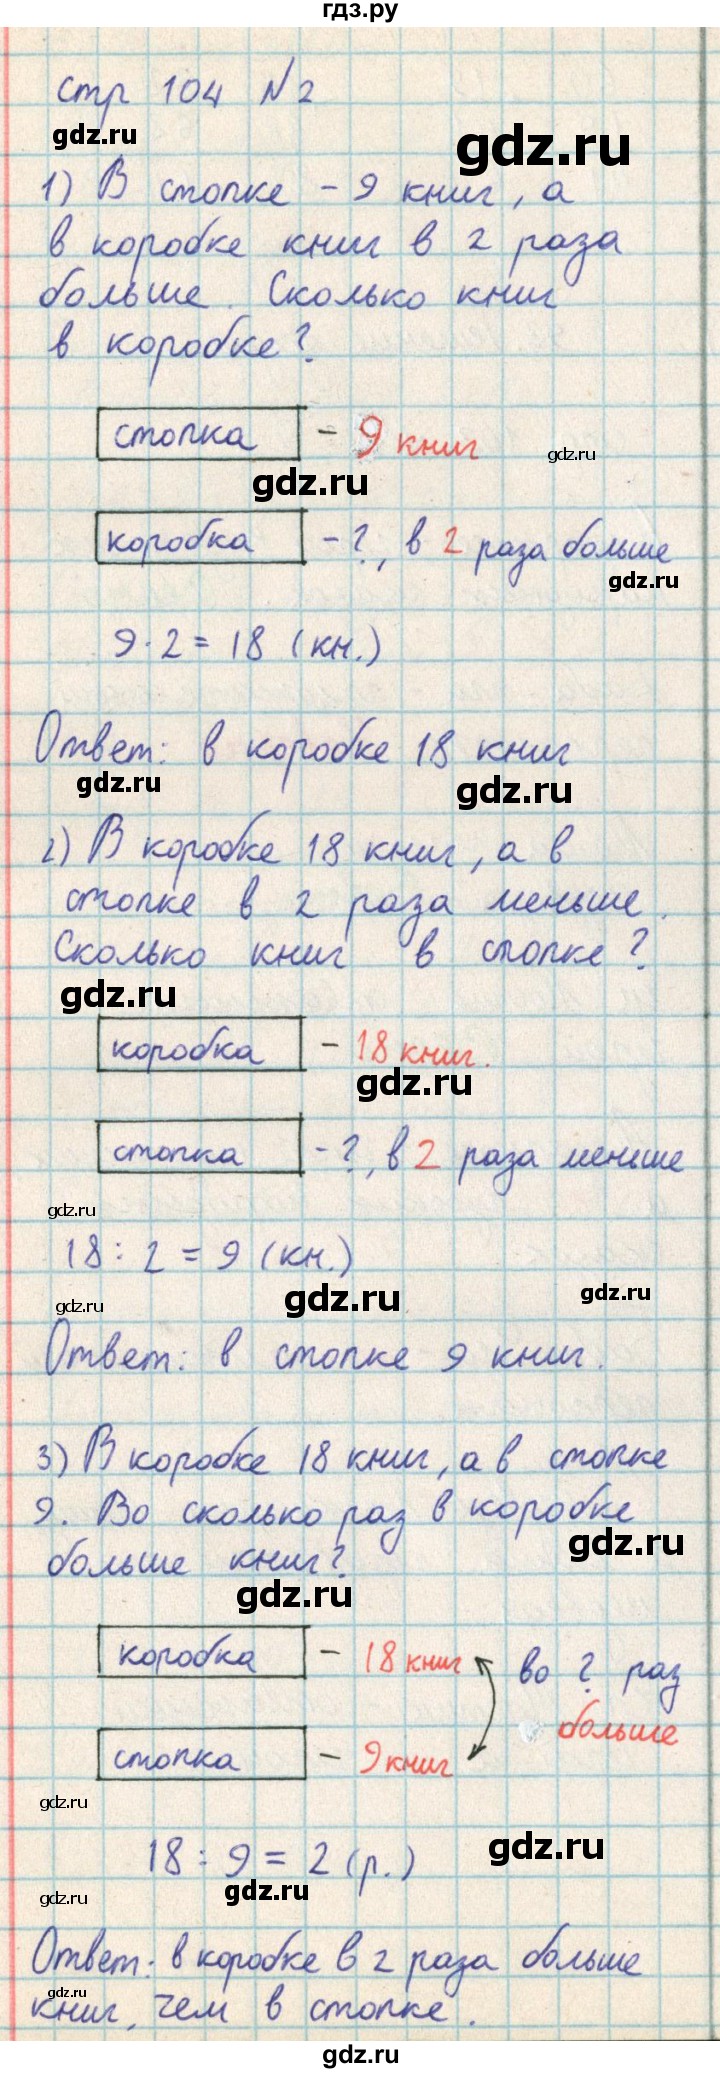 гдз.ру
стр 104 №2
gdz.ru
gdz.ru
1) В стопке - 9 книг, а
в коробке книг в 2 раза
больше. Сколько книг
в коробке?
стопка - 9 книг
gdz.ru
gdz.ru
коробка - ?, в 2 раза больше
gdz.ru
9·2=18 (кн.)
Ответ: в коробке 18 книг
gdz.ru
gdz.ru
2) В коробке 18 книг, а в
стопке в 2 раза меньше.
Сколько книг в стопке?
gdz.ru
коробка - 18 книг.
gdz.ru
стопка - ?, в 2 раза меньше
gdz.ru
18:2=9 (кн.)
gdz.ru
gdz.ru
gdz.ru
Ответ: в стопке 9 книг.
3) В коробке 18 книг, а в стопке
9. Во сколько раз в коробке
gdz.ru
больше книг?
gdz.ru
коробка - 18 книг во ? раз
больше
стопка - 9 книг
gdz.ru
18:9=2 (р.)
gdz.ru
gdz.ru
gdz.ru
Ответ: в коробке в 2 раза больше
gdz.ru
книг, чем в стопке.
gdz.ru